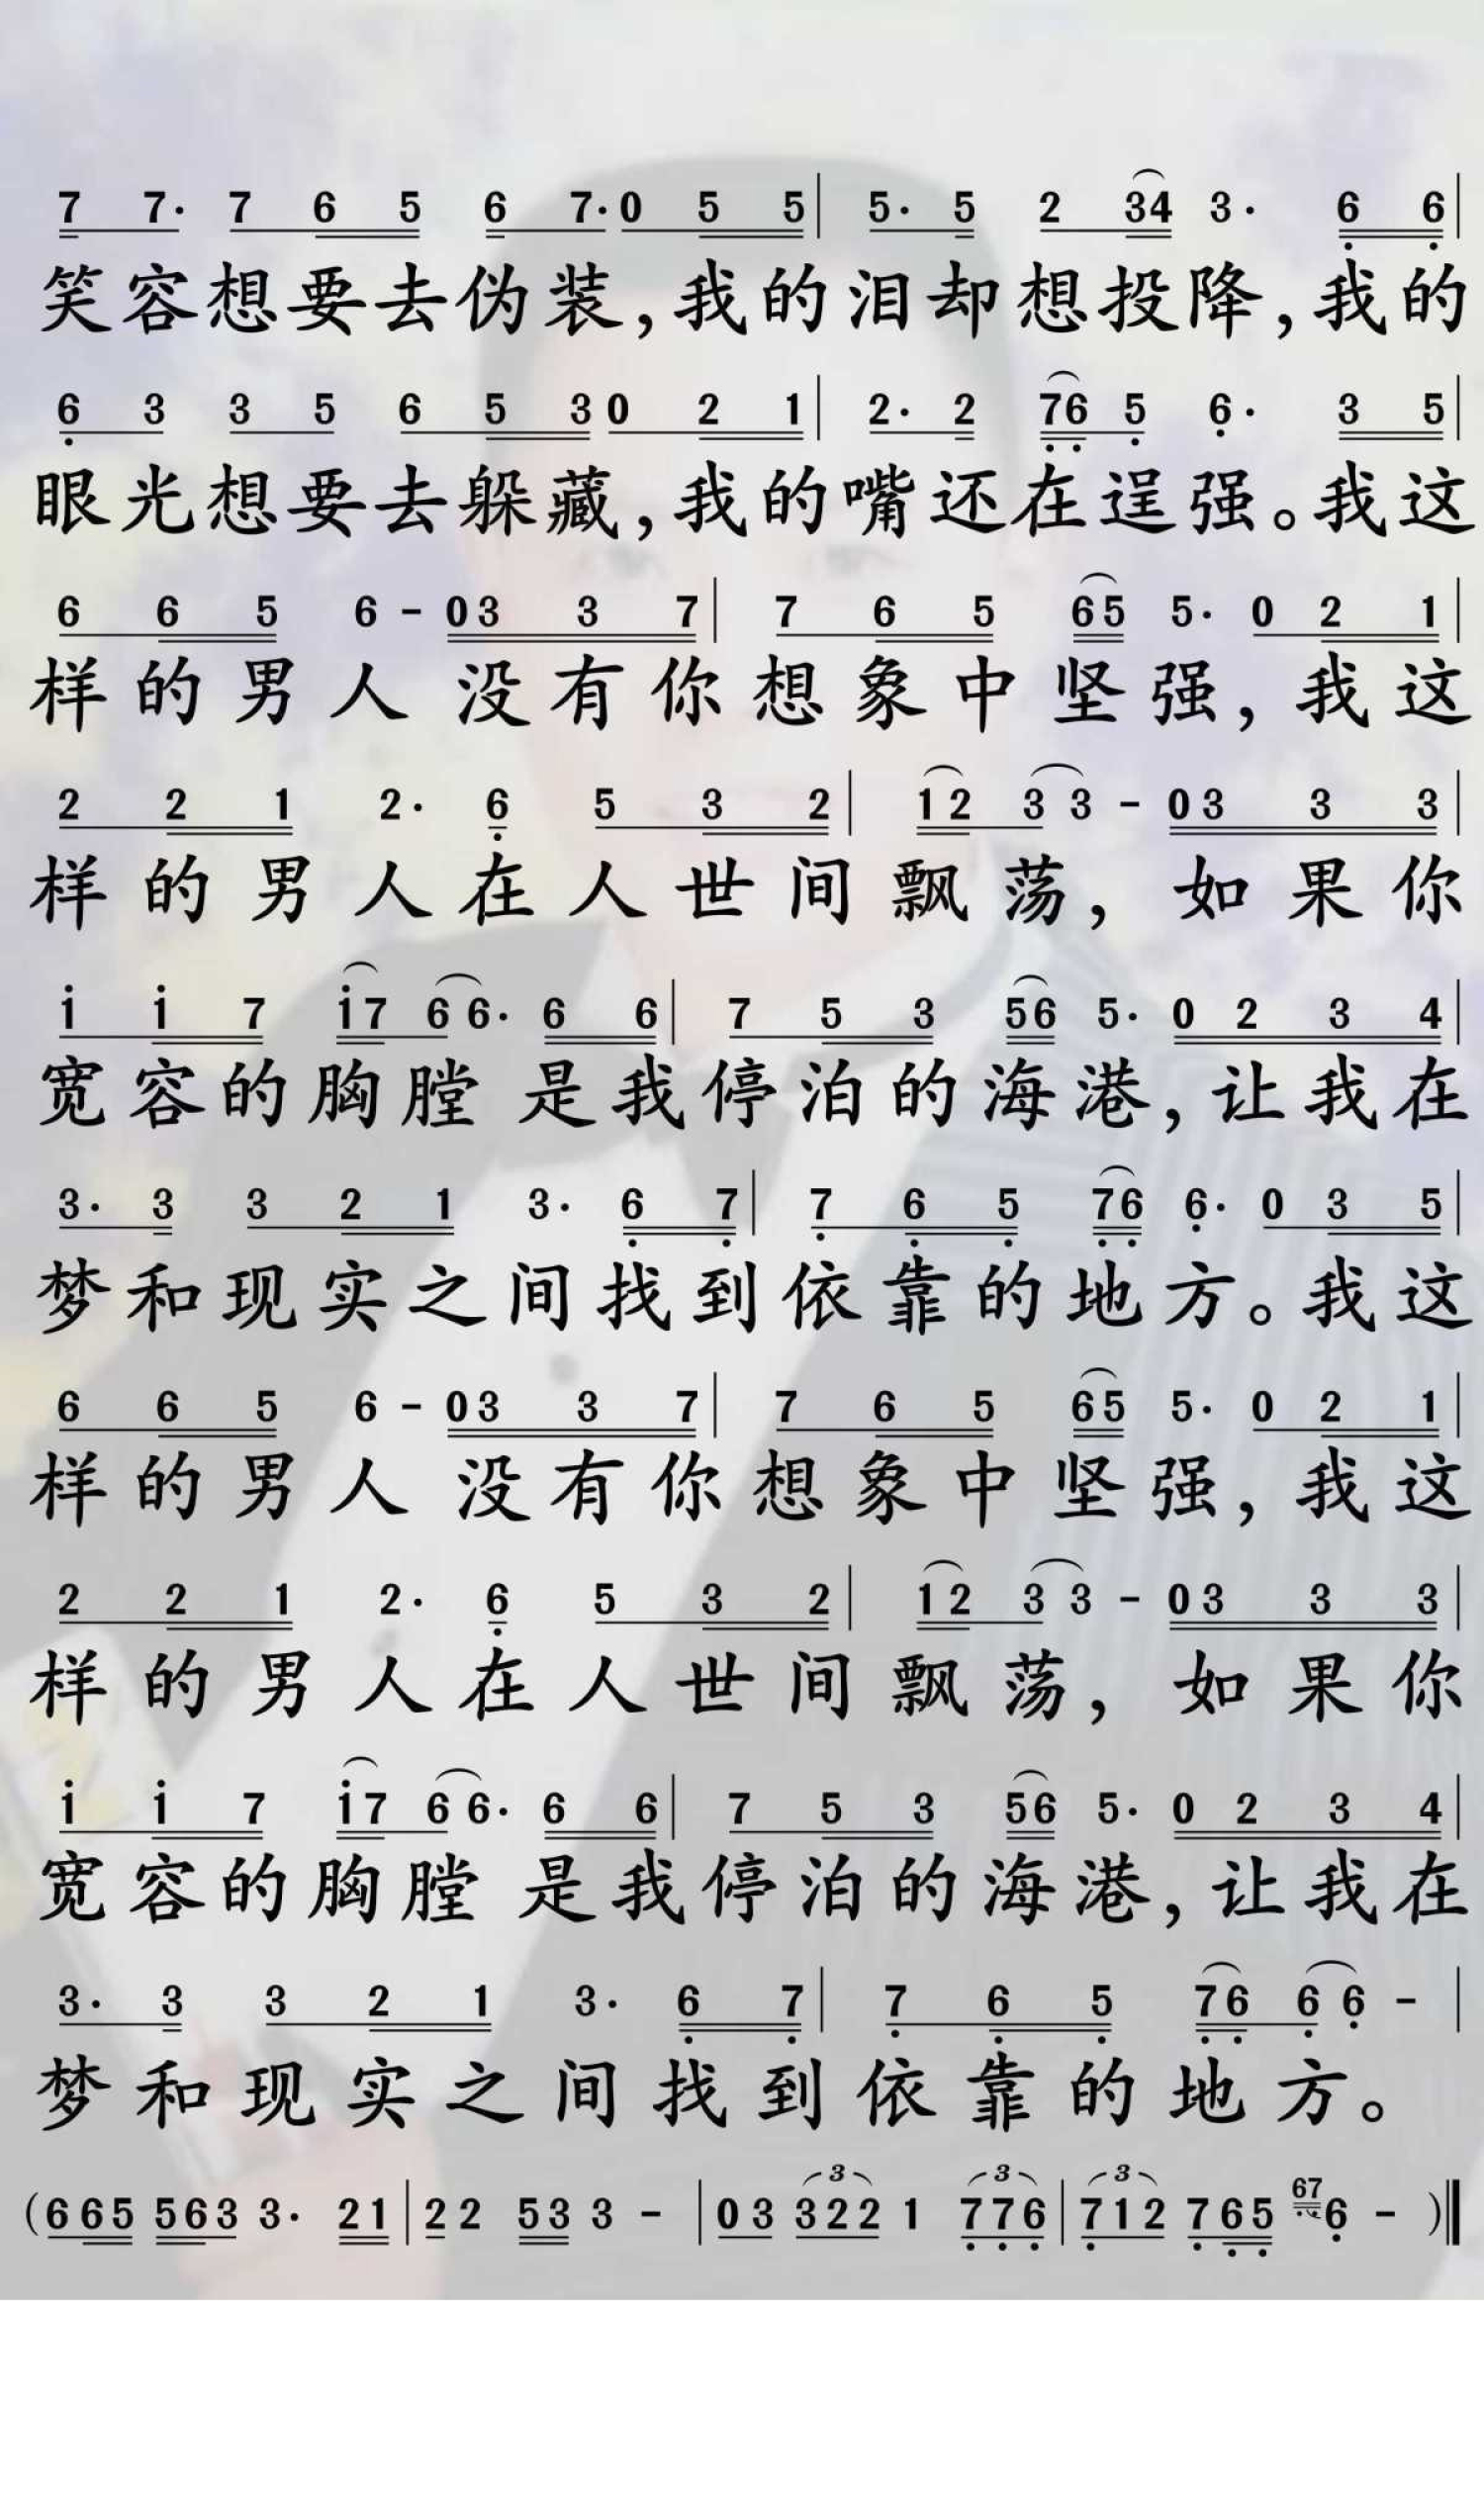 7 7· 7 6 5 6 7· 0 5 5 | 5· 5 2 34 3· 6̣ 6̣ |
笑容想要去伪装,我的泪却想投降,我的
6̣ 3 3 5 6 5 3 0 2 1 | 2· 2 7̣6̣ 5̣ 6̣· 3 5 |
眼光想要去躲藏,我的嘴还在逞强。我这
6 6 5 6 - 0 3 3 7 | 7 6 5 65 5· 0 2 1 |
样的男人 没有你想象中坚强,我这
2 2 1 2· 6̣ 5 3 2 | 12 3 3 - 0 3 3 3 |
样的男人在人世间飘荡, 如果你
i i 7 i7 6 6· 6 6 | 7 5 3 56 5· 0 2 3 4 |
宽容的胸膛 是我停泊的海港,让我在
3· 3 3 2 1 3· 6̣ 7̣ | 7̣ 6̣ 5̣ 7̣6̣ 6̣· 0 3 5 |
梦和现实之间找到依靠的地方。我这
6 6 5 6 - 0 3 3 7 | 7 6 5 65 5· 0 2 1 |
样的男人 没有你想象中坚强,我这
2 2 1 2· 6̣ 5 3 2 | 12 3 3 - 0 3 3 3 |
样的男人在人世间飘荡, 如果你
i i 7 i7 6 6· 6 6 | 7 5 3 56 5· 0 2 3 4 |
宽容的胸膛 是我停泊的海港,让我在
3· 3 3 2 1 3· 6̣ 7̣ | 7̣ 6̣ 5̣ 7̣6̣ 6̣ 6̣ - |
梦和现实之间找到依靠的地方。
(665 563 3· 21 | 22 53 3 - | 03 3 322 1 3 7̣7̣6̣ | 3 7̣12 7̣6̣5̣ 67 6̣ - )‖